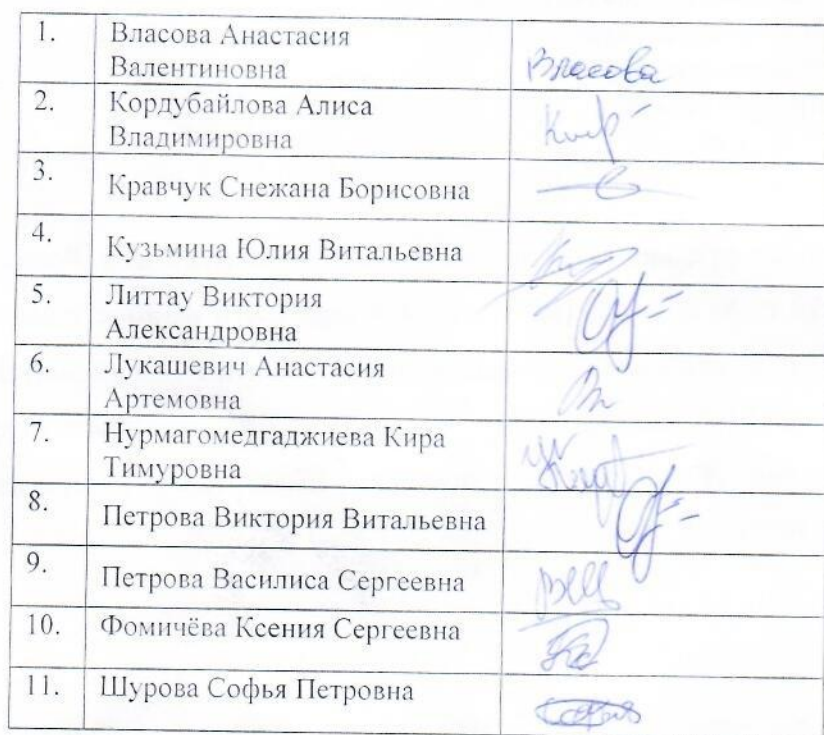 1. Власова Анастасия
Валентиновна Власова
2. Кордубайлова Алиса
Владимировна
3. Кравчук Снежана Борисовна
4. Кузьмина Юлия Витальевна
5. Литтау Виктория
Александровна
6. Лукашевич Анастасия
Артемовна
7. Нурмагомедгаджиева Кира
Тимуровна
8. Петрова Виктория Витальевна
9. Петрова Василиса Сергеевна
10. Фомичёва Ксения Сергеевна
11. Шурова Софья Петровна